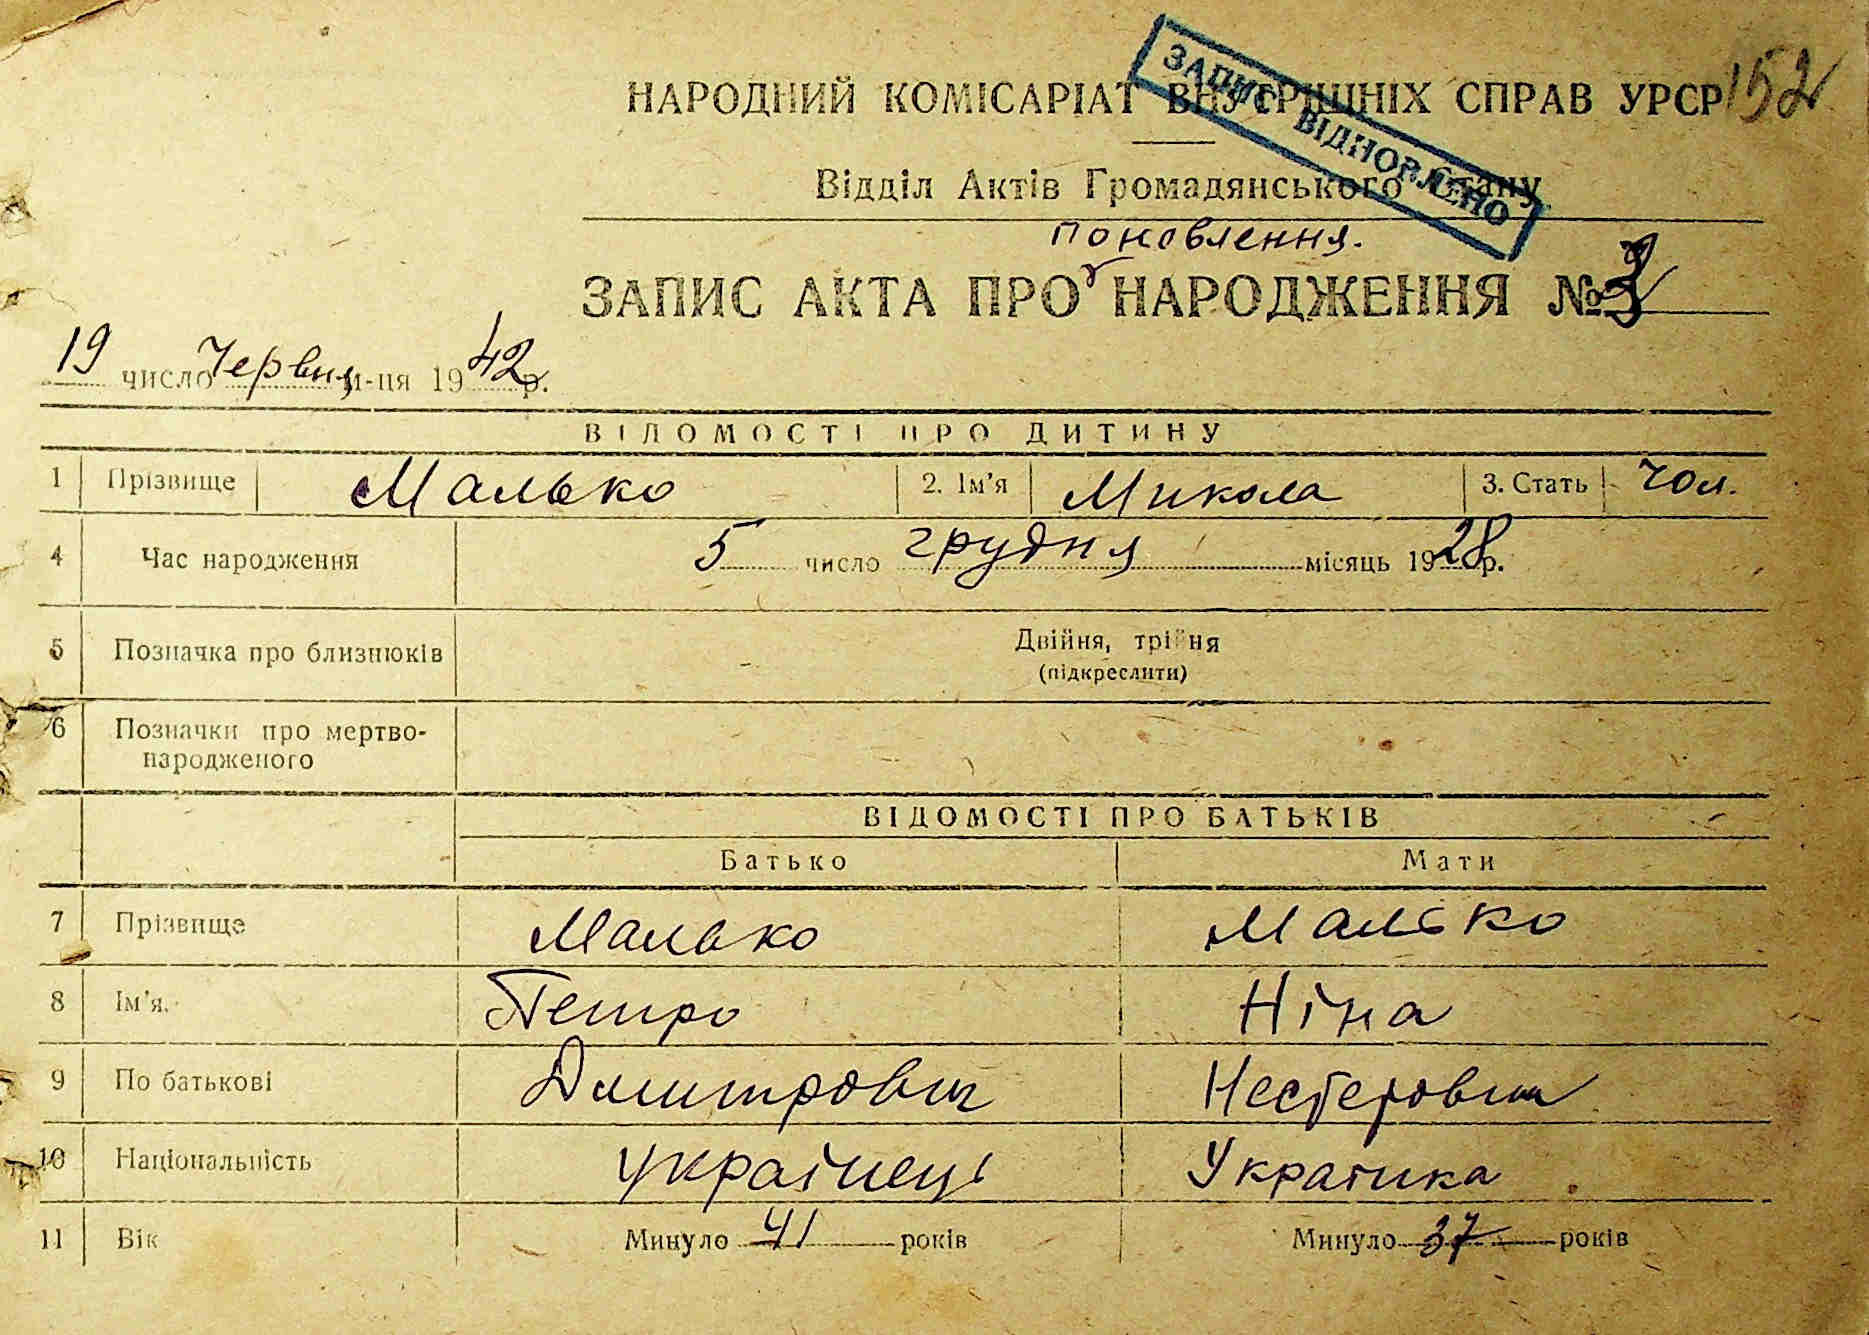 152
ЗАПИС ВІДНОВЛЕНО
НАРОДНИЙ КОМІСАРІАТ ВНУТРІШНІХ СПРАВ УРСР
Відділ Актів Громадянського Стану
поновлення.
ЗАПИС АКТА ПРО НАРОДЖЕННЯ №
19 число Червня м-ця 1942 р.
ВІДОМОСТІ ПРО ДИТИНУ
1 Прізвище Малько 2. Ім'я Микола 3. Стать чол.
4 Час народження 5 число грудня місяць 1928 р.
5 Позначка про близнюків Двійня, трійня
(підкреслити)
6 Позначки про мертво-
народженого
ВІДОМОСТІ ПРО БАТЬКІВ
Батько Мати
7 Прізвище Малько Малько
8 Ім'я. Петро Ніна
9 По батькові Дмитрович Нестеровна
10 Національність Українець Українка
11 Вік Минуло 41 років Минуло 37 років